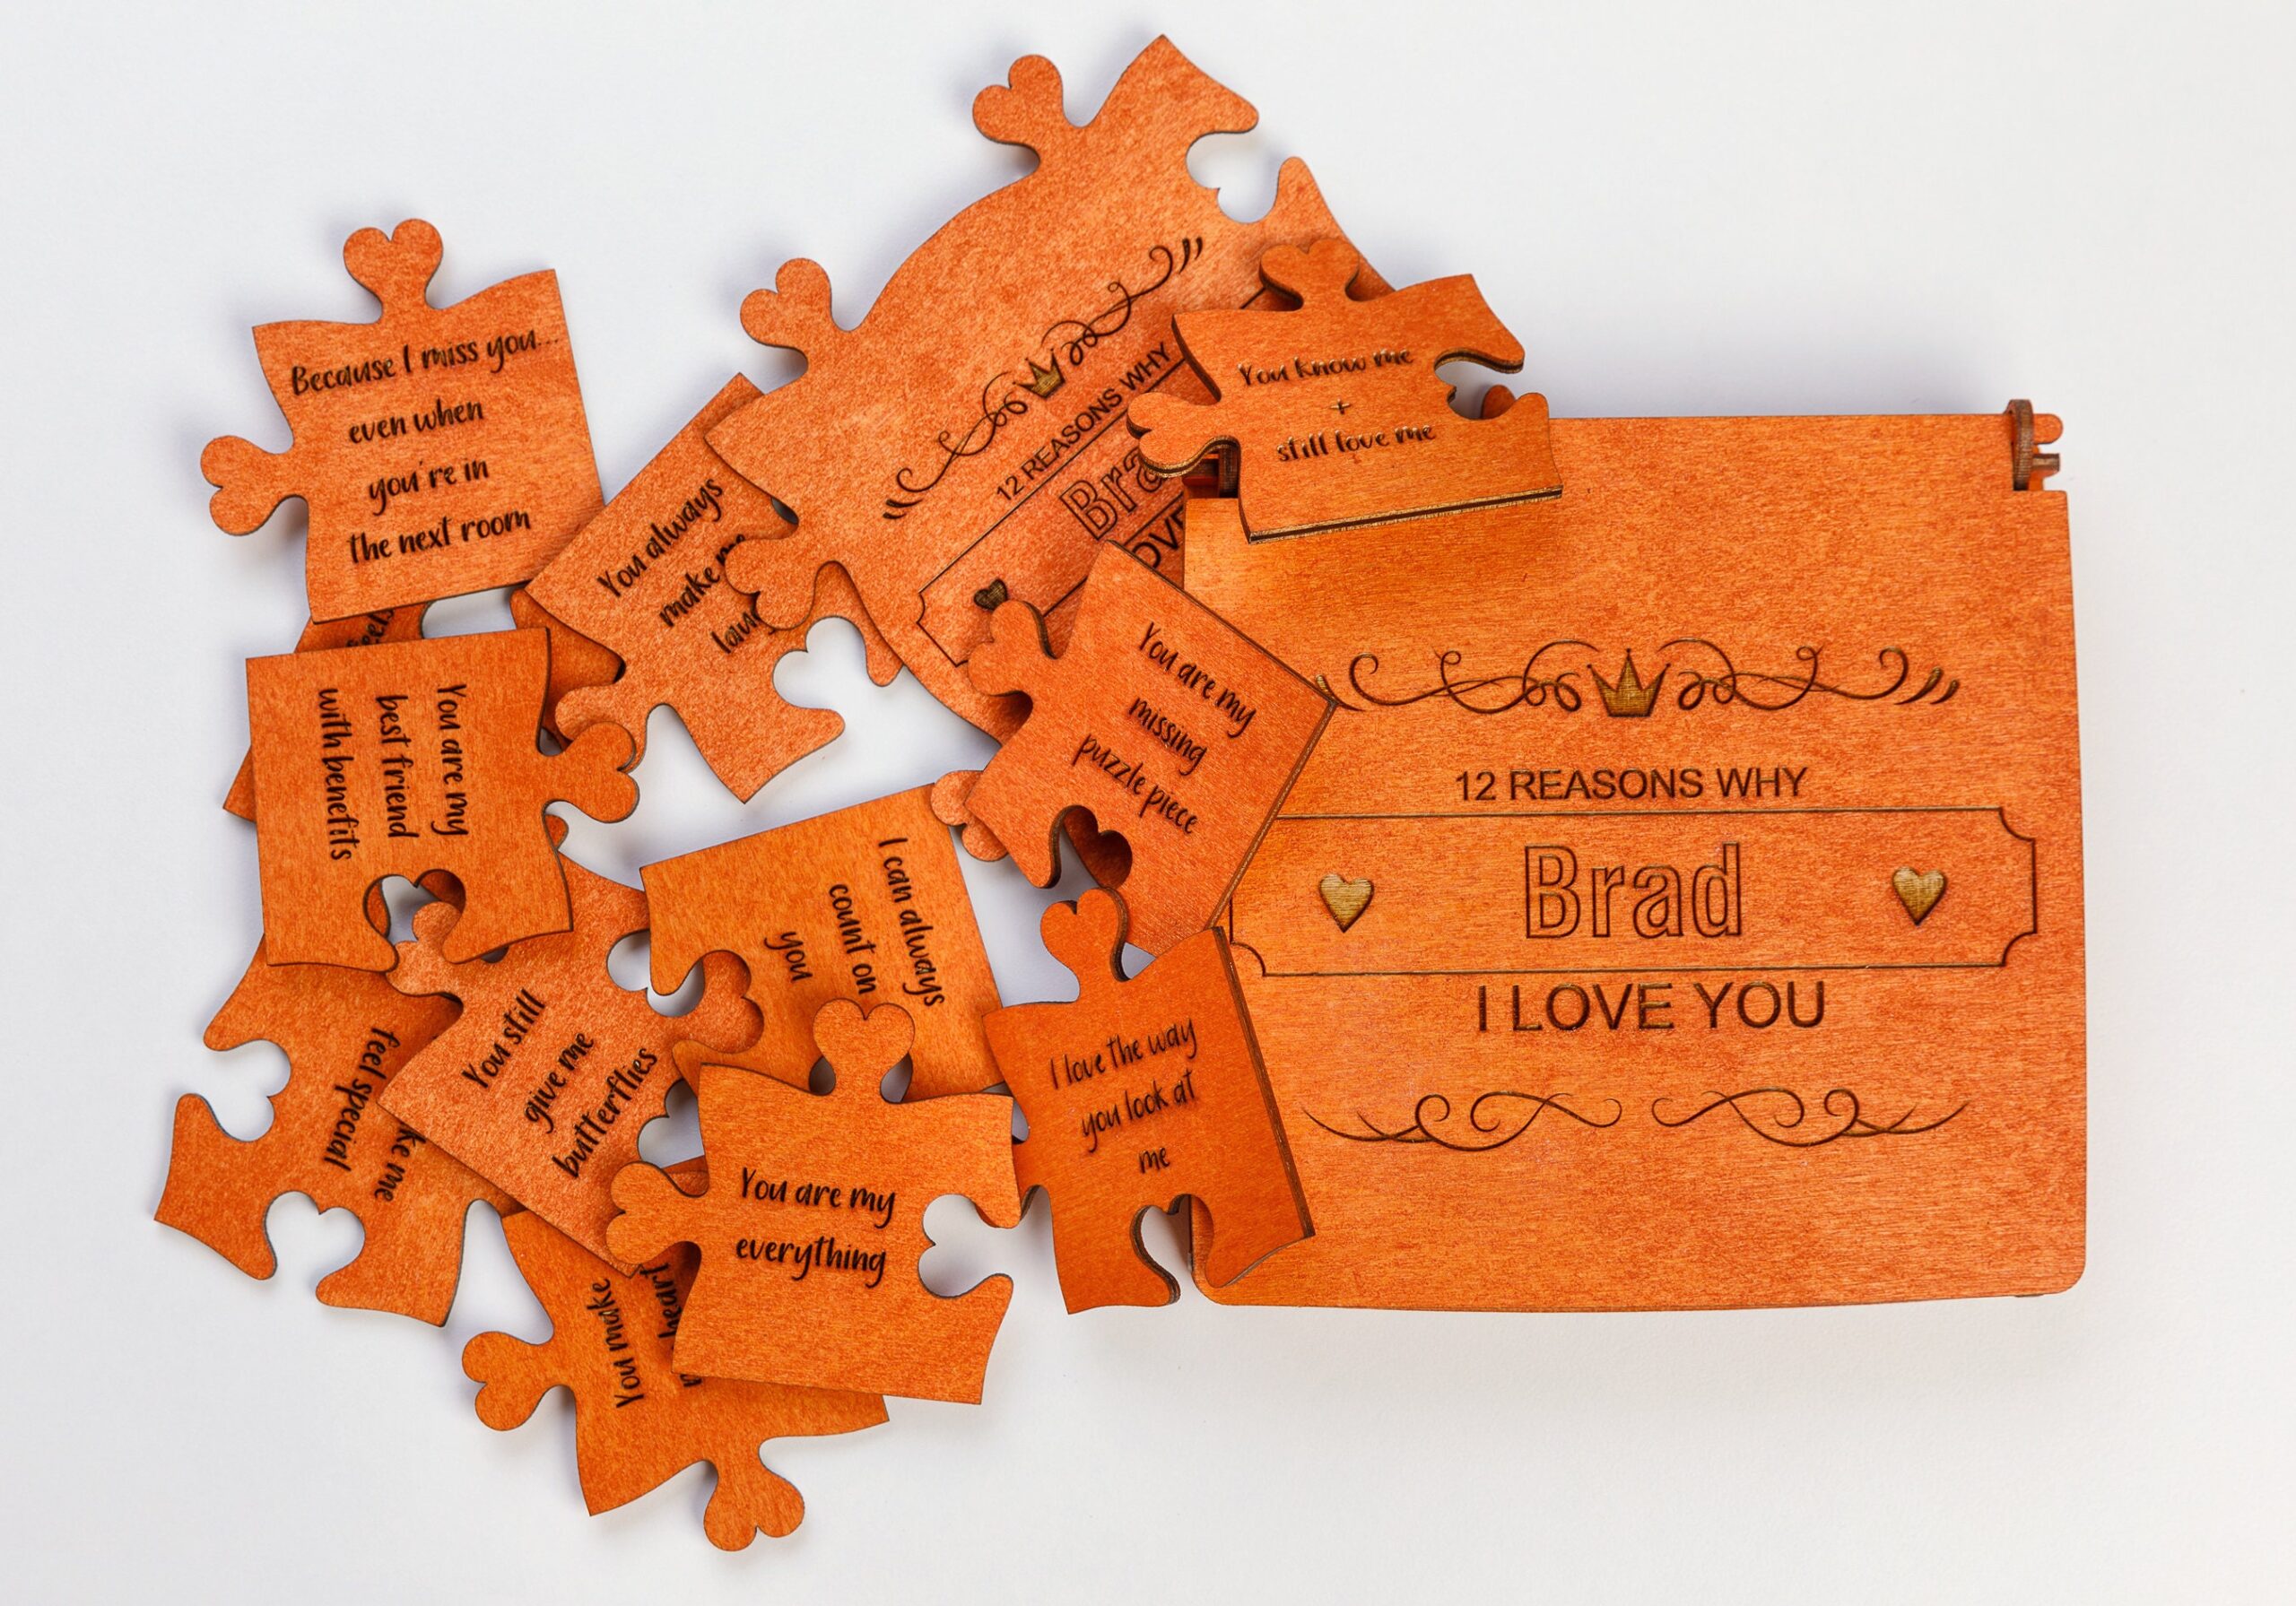 Because I miss you...
even when
you're in
the next room
You always
make me
12 REASONS WHY
You know me
+
still love me
You are my
missing
puzzle piece
You are my
best friend
with benefits
I can always
count on
you
You still
give me
butterflies
me
feel special
I love the way
you look at
me
You are my
everything
You make
heart
12 REASONS WHY
Brad
I LOVE YOU